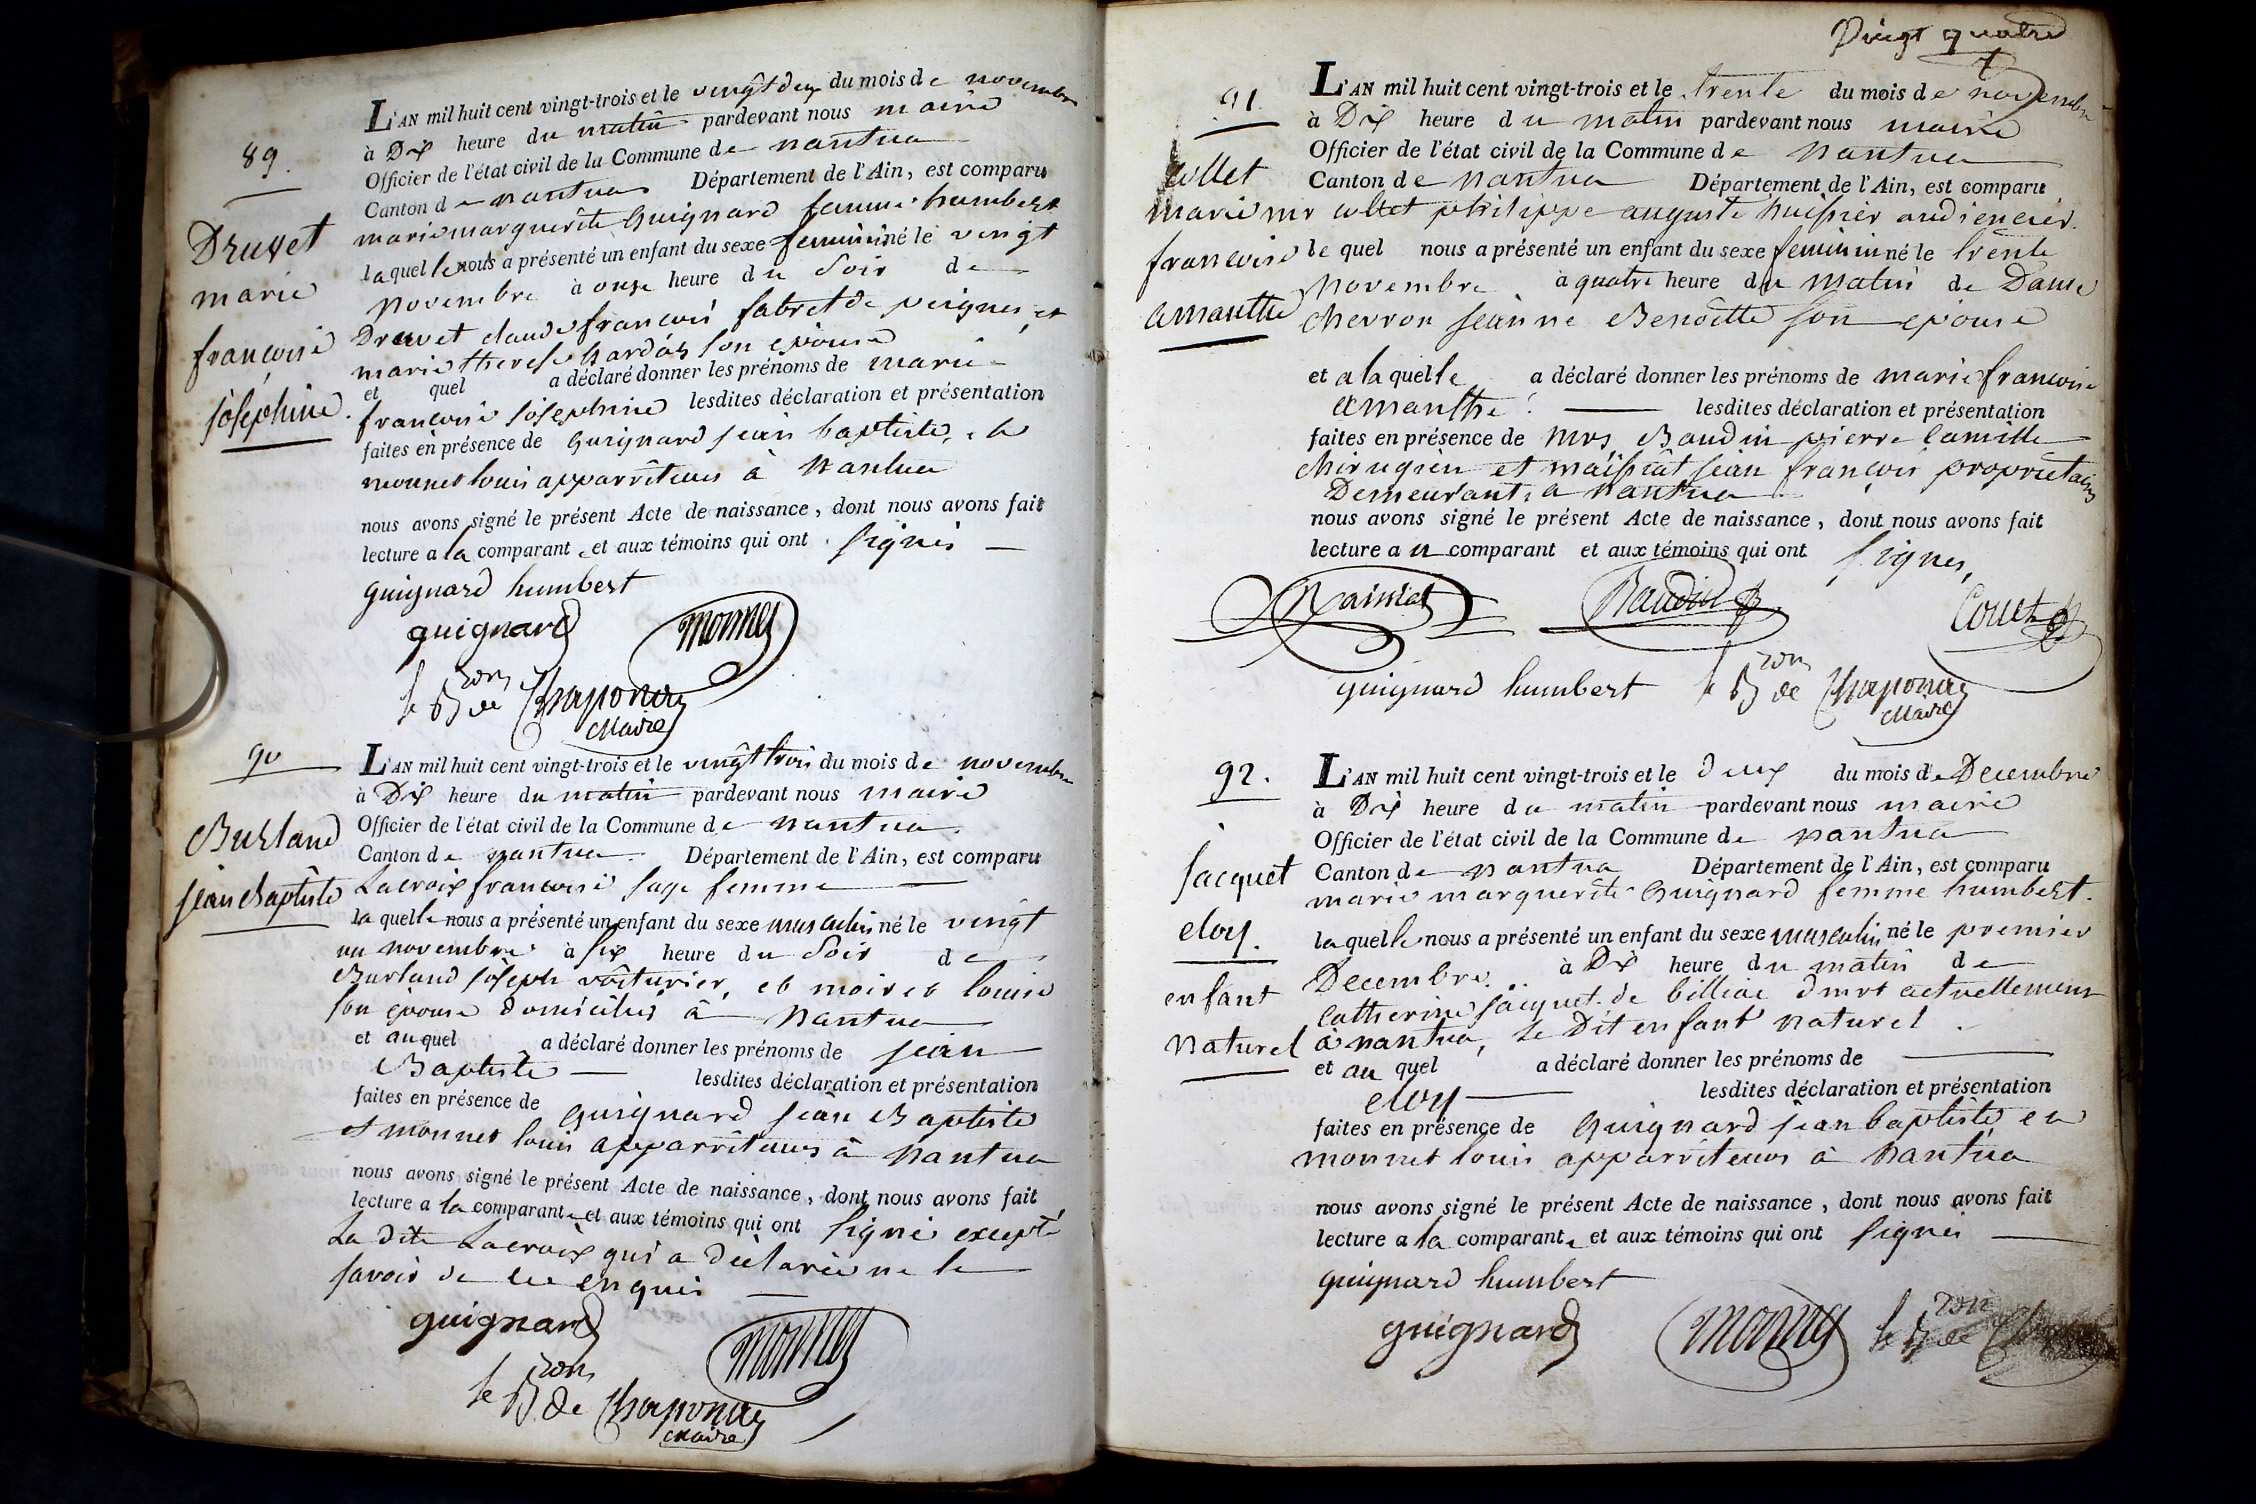 89.
Druvet
marie
françoise
josephine.
L'AN mil huit cent vingt-trois et le vingt deux du mois de novembre
à Dix heure du matin pardevant nous maire
Officier de l'état civil de la Commune de nantua
Canton de nantua Département de l'Ain, est comparu
marie marguerite Guignard femme humbert
laquelle nous a présenté un enfant du sexe feminin né le vingt
novembre à onze heure du soir de
Druvet claude françois fabret de peignes et
marie therese hardas son epouse
et quel a déclaré donner les prénoms de marie
françoise josephine lesdites déclaration et présentation
faites en présence de guignard jean baptiste, et
monnet louis apparriteurs à nantua
nous avons signé le présent Acte de naissance, dont nous avons fait
lecture a la comparante et aux témoins qui ont signés
guignard humbert
guignard monnet
le Bon de Chaponay
Maire
90
Burland
jean Baptiste
L'AN mil huit cent vingt-trois et le vingt trois du mois de novembre
à Dix heure du matin pardevant nous maire
Officier de l'état civil de la Commune de nantua
Canton de nantua Département de l'Ain, est comparu
Lacroix françoise sage femme
laquelle nous a présenté un enfant du sexe masculin né le vingt
un novembre à six heure du soir de
Burland joseph voiturier, et moiret louise
son epouse domiciliés à nantua
et auquel a déclaré donner les prénoms de jean
Baptiste lesdites déclaration et présentation
faites en présence de guignard jean Baptiste
et monnet louis apparriteurs à nantua
nous avons signé le présent Acte de naissance, dont nous avons fait
lecture a la comparante et aux témoins qui ont signé excepté
La dite Lacroix qui a déclarée ne le
savoir de ce enquis
guignard monnet
le Bon de Chaponay
Maire
Vingt quatre
91.
collet
marie
françoise
amanthe
L'AN mil huit cent vingt-trois et le trente du mois de novembre
à Dix heure du matin pardevant nous maire
Officier de l'état civil de la Commune de nantua
Canton de nantua Département de l'Ain, est comparu
mr collet philippe auguste huissier audiencier.
lequel nous a présenté un enfant du sexe feminin né le trente
novembre à quatre heure du matin de Dame
Chevron jeanne Benoitte son epouse
et a laquelle a déclaré donner les prénoms de marie françoise
amanthe. lesdites déclaration et présentation
faites en présence de mrs Baudin pierre camille
chirugien et maissiat jean françois proprietaires
Demeurant a nantua
nous avons signé le présent Acte de naissance, dont nous avons fait
lecture a u comparant et aux témoins qui ont signes,
Maissiat Baudin Collet
guignard humbert le Bon de Chaponay
Maire
92.
jacquet
eloy.
enfant
naturel
L'AN mil huit cent vingt-trois et le deux du mois de Decembre
à Dix heure du matin pardevant nous maire
Officier de l'état civil de la Commune de nantua
Canton de nantua Département de l'Ain, est comparu
marie marguerite Guignard femme humbert.
laquelle nous a présenté un enfant du sexe masculin né le premier
Decembre. à Dix heure du matin de
Catherine jacquet de billiac dmrt actuellement
à nantua, le Dit enfant naturel.
et au quel a déclaré donner les prénoms de
eloy lesdites déclaration et présentation
faites en présence de Guignard jean baptiste, et
monnet louis apparriteurs à nantua
nous avons signé le présent Acte de naissance, dont nous avons fait
lecture a la comparante et aux témoins qui ont signés
guignard humbert
guignard monnet le Bon de